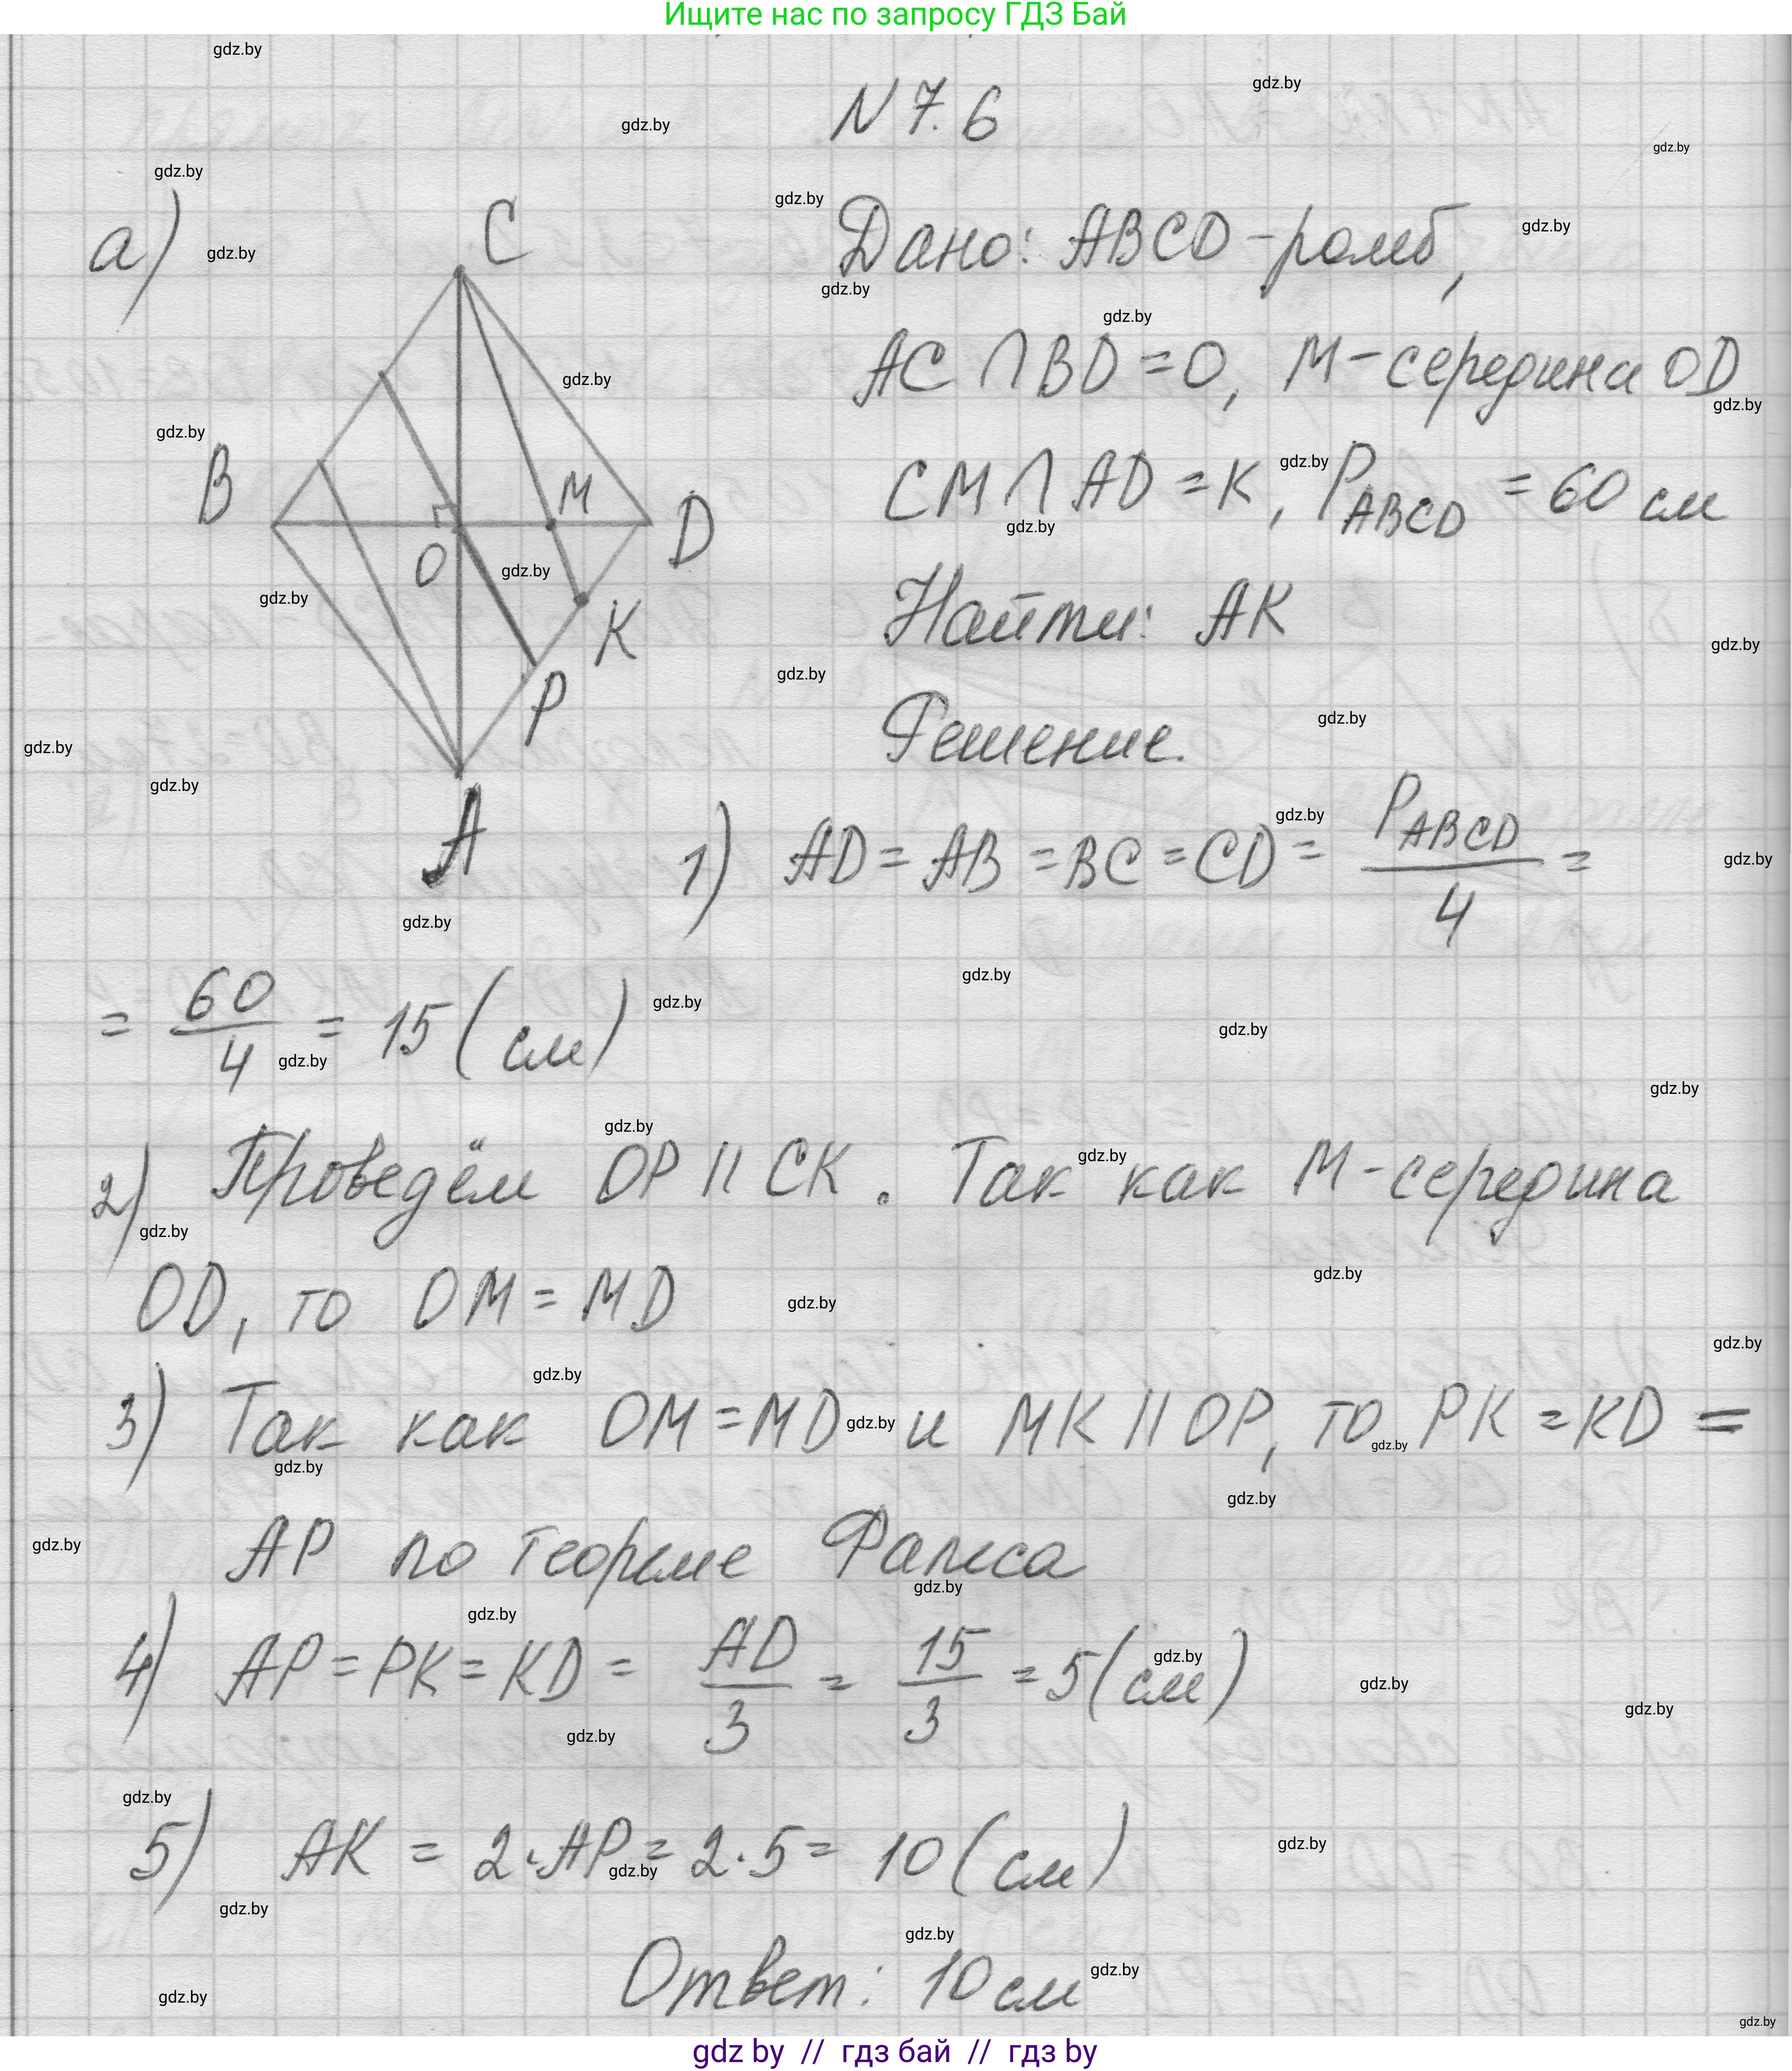 Ищите нас по запросу ГДЗ Бай
N 7.6
а)
Дано: ABCD - ромб,
AC ∩ BD = O, M - середина OD
CM ∩ AD = K, P_ABCD = 60 см
Найти: AK
Решение.
C
B
M
D
O
K
P
A
1) AD = AB = BC = CD = P_ABCD / 4 =
= 60/4 = 15 (см)
2) Проведём OP || CK. Так как M - середина
OD, то OM = MD
3) Так как OM = MD и MK || OP, то PK = KD =
AP по теореме Фалеса
4) AP = PK = KD = AD/3 = 15/3 = 5 (см)
5) AK = 2·AP = 2·5 = 10 (см)
Ответ: 10 см
gdz.by
gdz by // гдз бай // гдз by